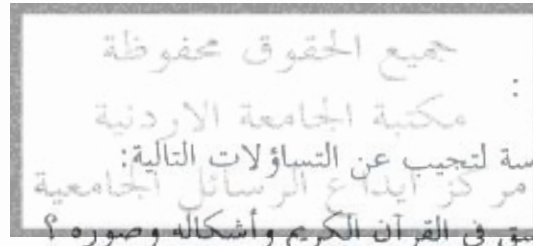 جميع الحقوق محفوظة
:
مكتبة الجامعة الاردنية
سة لتجيب عن التساؤلات التالية:
مركز ايداع الرسائل الجامعية
في القرآن الكريم وأشكاله وصوره ؟